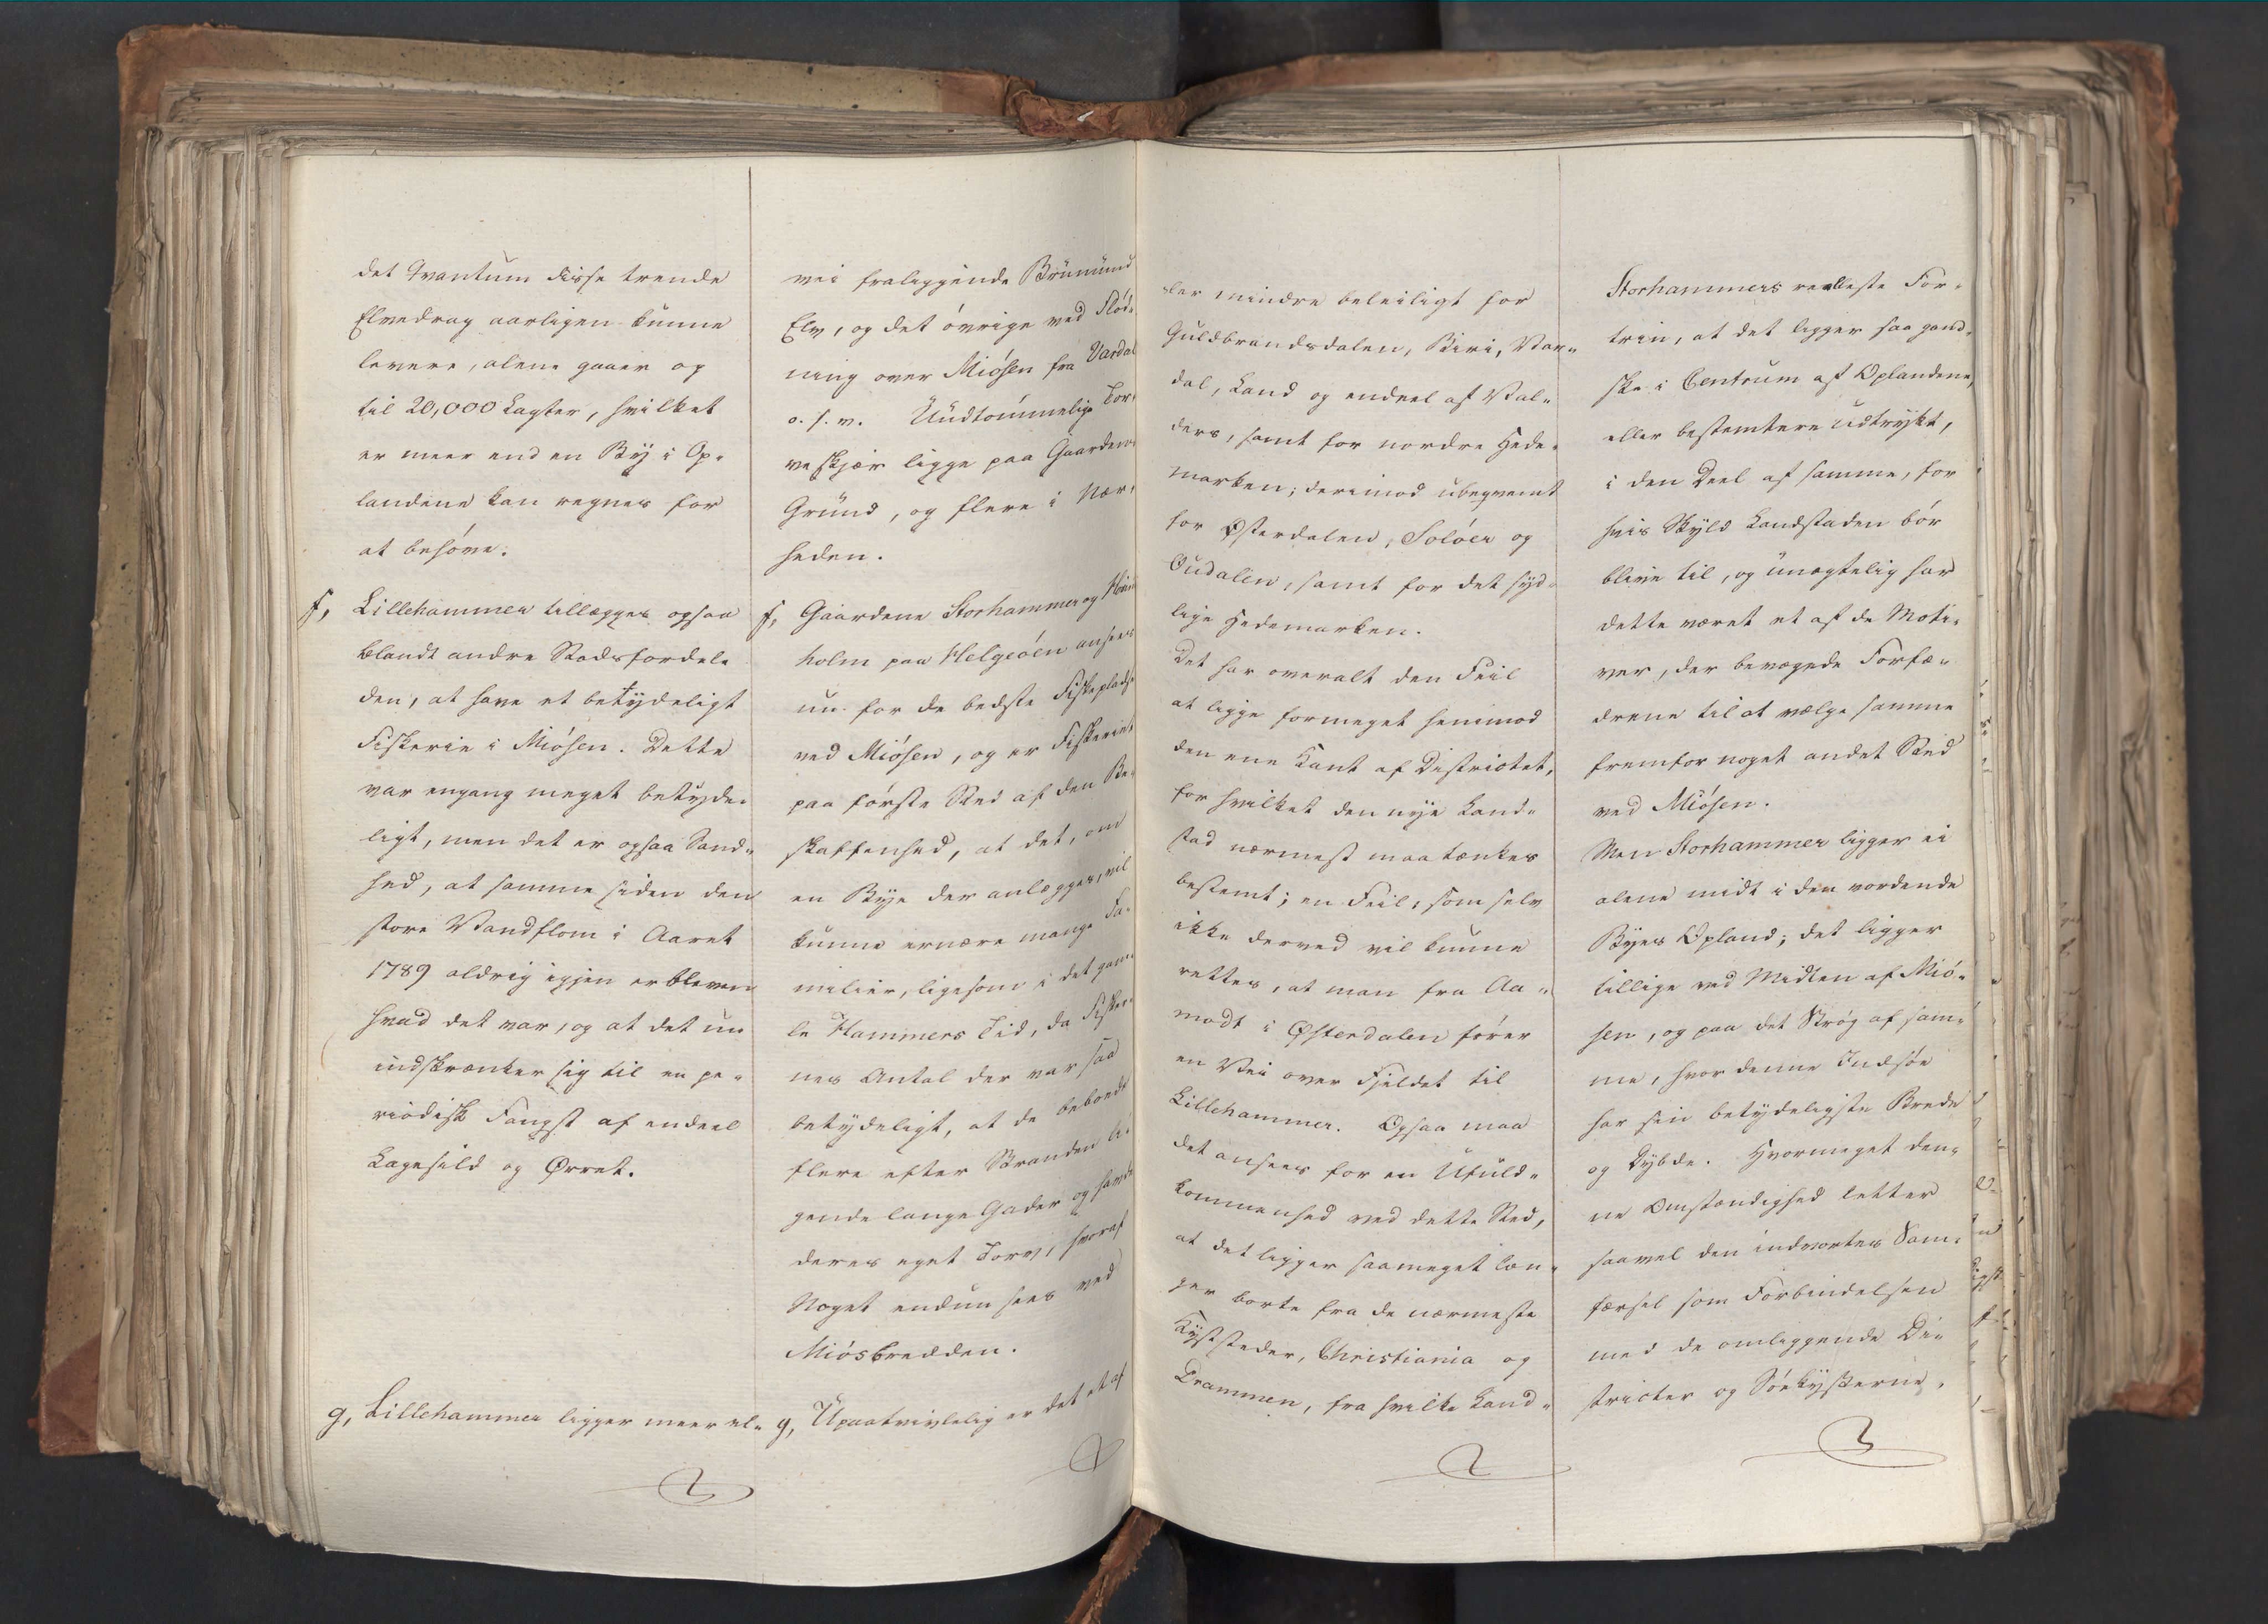 det Qvantum disse trende
Elvedrag aarligen kunne
levere, alene gaaer op
til 20,000 Lagter, hvilket
er meer end en By i Op-
landene kan regnes for
at behøve.
f, Lillehammer tillægges ogsaa
blandt andre Stedsfordele
den, at have et betydeligt
Fiskerie i Miösen. Dette
var engang meget betyde-
ligt, men det er ogsaa Sand-
hed, at samme siden den
store Vandflom i Aaret
1789 aldrig igjen er bleven
hvad det var, og at det nu
indskrænker sig til en pe-
riodisk Fangst af endeel
Lagesild og Ørret.
g, Lillehammer ligger meer el-
vei fraliggende Brumund
Elv, og det övrige ved Flöd-
ning over Miösen fra Vardal
o. s. v. Uudtömmelige Tor-
veskjær ligge paa Gaardens
Grund, og flere i Nær-
heden.
f, Gaardene Storhammer og
holm paa Helgeöen ansees
nu for de bedste Fiskepladse
ved Miösen, og er Fiskeriet
paa förste Sted af den Be-
skaffenhed, at det, om
en Bye der anlægges, vil
kunne ernære mange Fa-
milier, ligesom i det gam-
le Hammers Tid, da Fisker-
nes Antal der var saa
betydeligt, at de beboede
flere efter Stranden lig-
gende lange Gader og havde
deres eget Torv, hvoraf
Noget endnu sees ved
Miösbredden.
g, Upaatvivlelig er det et af
ler mindre beleiligt for
Guldbrandsdalen, Biri, Var-
dal, Land og endeel af Val-
ders, samt for nordre Hede-
marken; derimod ubeqvemt
for Østerdalen, Solöer og
Oudalen, samt for det syd-
lige Hedemarken.
Det har overalt den Feil
at ligge formeget henimod
den ene Kant af Districtet,
for hvilket den nye Land-
stad nærmest maa tænkes
bestemt; en Feil, som selv
ikke derved vil kunne
rettes, at man fra Aa-
modt i Østerdalen förer
en Vei over Fjeldet til
Lillehammer. Ogsaa maa
det ansees for en Ufuld-
kommenhed ved dette Sted,
at det ligger saameget læn-
ger borte fra de nærmeste
Kyststeder, Christiania og
Drammen, fra hvilke Land-
Storhammers reelleste For-
trin, at det ligger saa gand-
ske i Centrum af Oplandene,
eller bestemtere udtrykt,
i den Deel af samme, for
hvis Skyld Landstaden bör
blive til, og unægtelig har
dette været et af de Moti-
ver, der bevægede Forfæ-
drene til at vælge samme
fremfor noget andet Sted
ved Miösen.
Men Storhammer ligger ei
alene midt i den vordende
Byes Opland; det ligger
tillige ved Midten af Miö-
sen, og paa det Strög af sam-
me, hvor denne Indsöe
har sin betydeligste Brede
og Dybde. Hvormeget den-
ne Omstændighed letter
saavel den indvortes Sam-
færsel som Forbindelsen
med de omliggende Di-
stricter og Söekysterne,